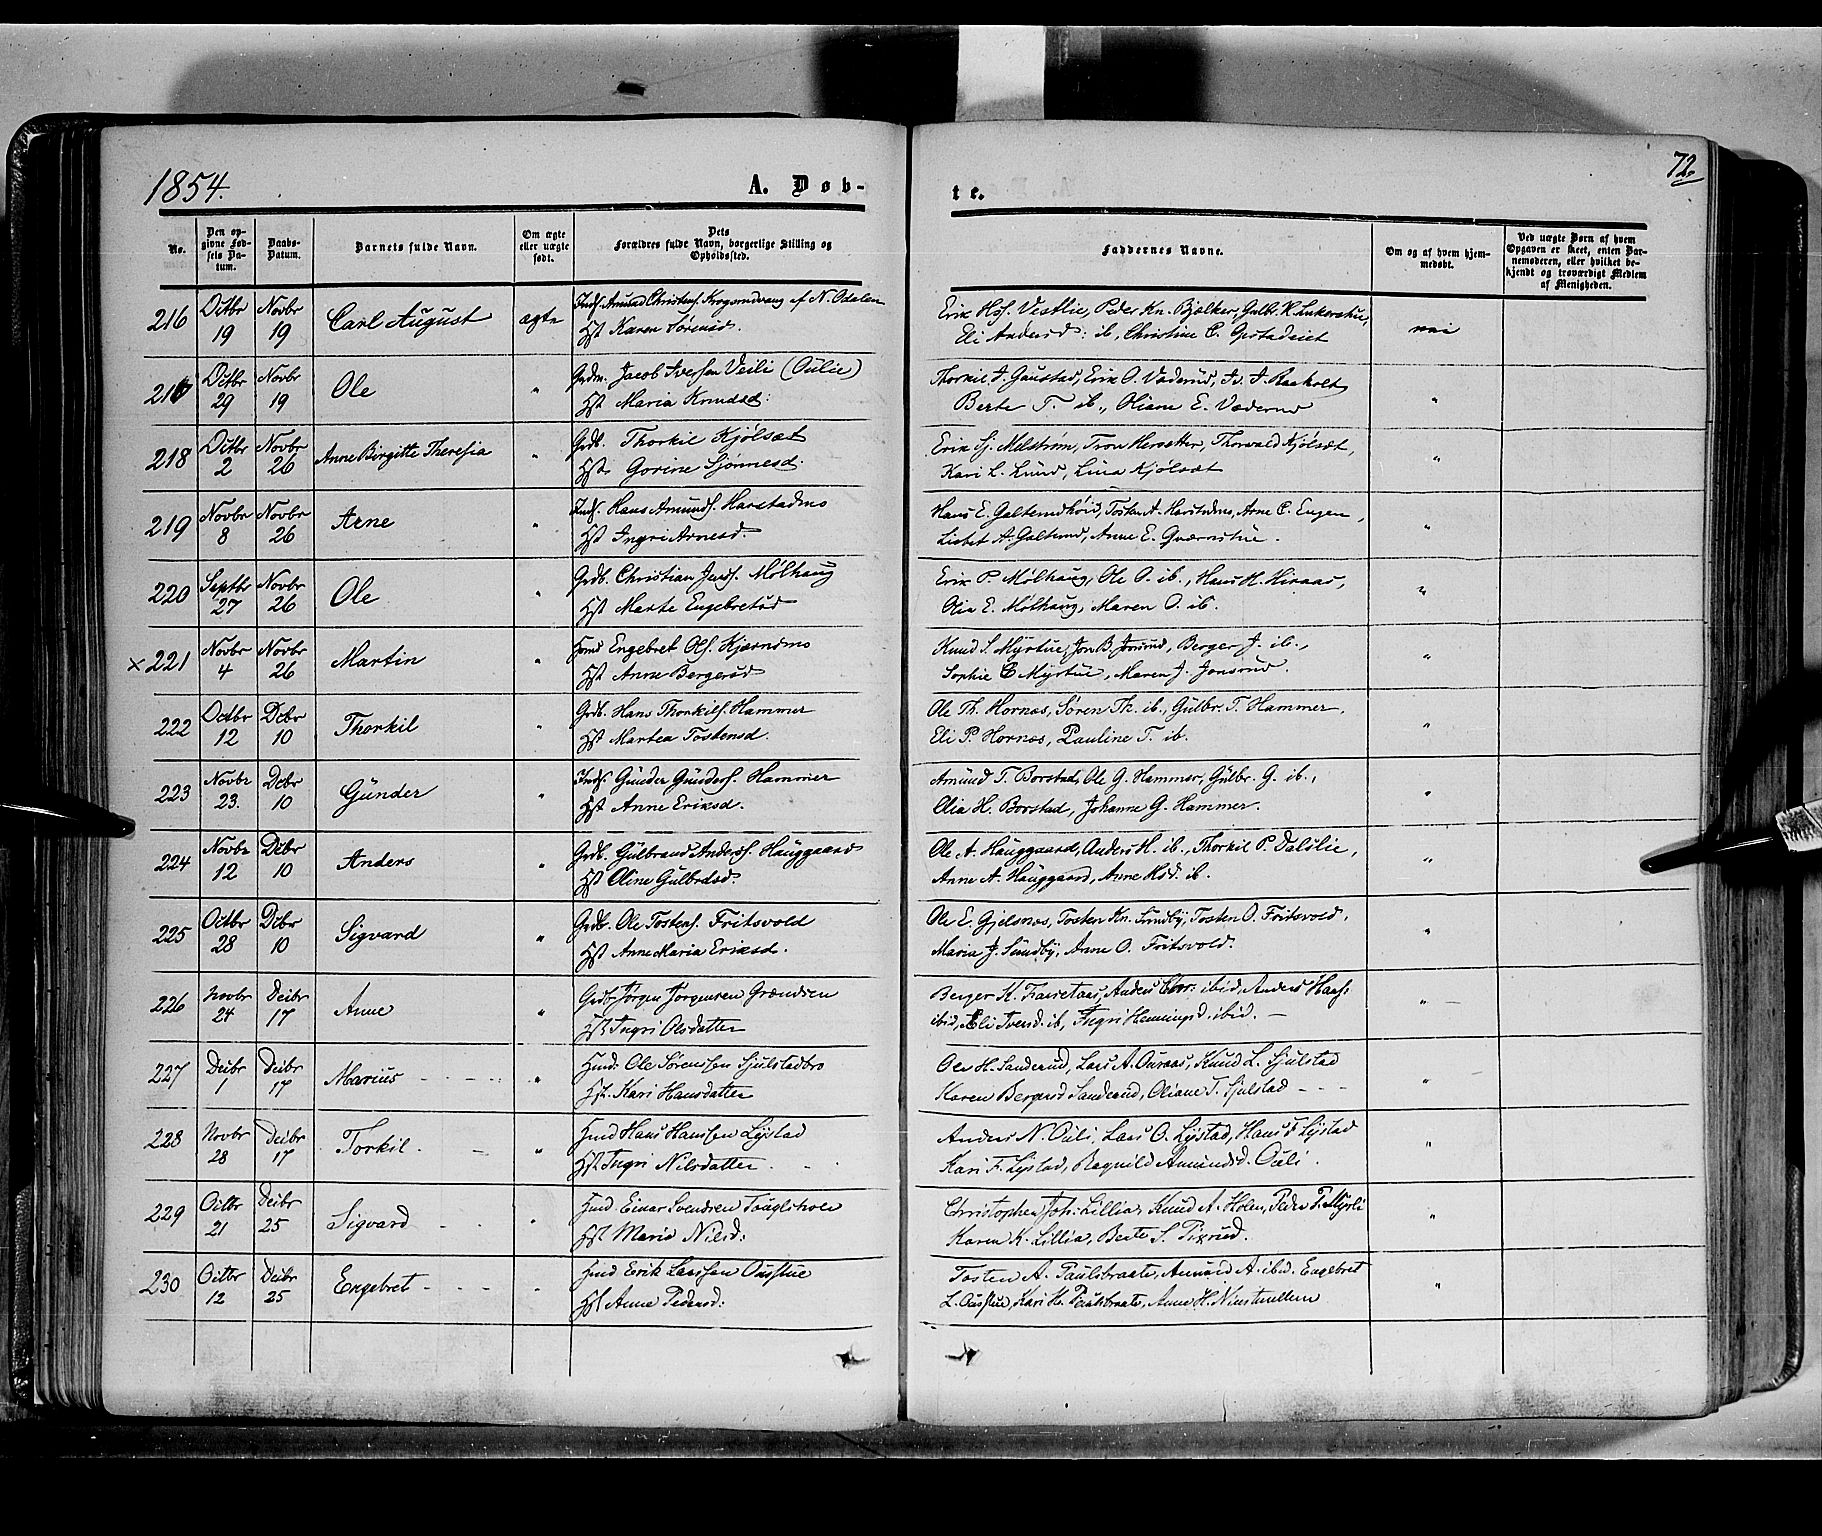 1854.
A. Døb-
te.
72
No.
Den op-
givne Fød-
sels Da-
tum.
Daabs-
Datum.
Barnets fulde Navn.
Om ægte
eller uægte
født.
Dets
Forældres fulde Navn, borgerlige Stilling og
Opholdssted.
Faddernes Navne.
Om og af hvem hjem-
medøbt.
Ved uægte Børn af hvem
Opgaven er skeet, enten Bar-
nemoderen, eller hvilket be-
kjendt og troværdigt Medlem
af Menigheden.
216 Octbr 19 Novbr 19 Carl August ægte
Inds. Amund Christens. Krogsrudvang af N. Odalen
Hst Karen Sørensd.
Erik Hs. Vestlie, Peder Kn. Bjælker, Gulb.
Eli Andersd: ib, Christine C.
nei
217 Octbr 29 Novbr 19 Ole "
Grdm. Jacob Iversen Veili (Oulie)
Hst Maria Knudsd:
Thorkil J. Gaustad, Erik O. Væderud, Iv. J. Raaholt
Berte T. ib., Oliane E. Væderud
"
218 Octbr 2 Novbr 26 Anne Birgitte Theresia "
Grdb. Thorkil Kjølsæt
Hst. Gorine Sjønnesd.
Erik Sj. Melstrøm, Tron Hersætter, Thorvald Kjølsæt,
Kari L. Lund, Lina Kjølsæt
"
219 Novbr 8 Novbr 26 Arne "
Inds. Hans Amunds. Harstadmo
Hst Ingri Arnesd.
Hans E. Galterudhöid, Tosten A. Harstadmo, Arne C. Engen,
Lisbet A. Galterud, Anne E. Qværnstue.
"
220 Septbr 27 Novbr 26 Ole "
Grdb. Christian Jenss. Mølhaug
Hst Marte Engebretsd
Erik P. Mølhaug, Ole O. ib., Hans H. Hiraas,
Olia E. Mølhaug, Maren O. ib.
"
× 221 Novbr 4 Novbr 26 Martin "
Hmd Engebret Ols. Kjærndmo
Hst Anne Bergersd
Knud S. Myrtue, Jon B. Jonsrud, Berger J. ib.,
Sophie C Myrtue, Maren J. Jonsrud.
"
222 Octbr 12 Dcbr 10 Thorkil "
Grdb. Hans Thorkils. Hammer
Hst Martea Tostensd.
Ole Th. Hornæs, Søren Th. ib., Gulbr. T. Hammer,
Eli P. Hornæs, Pauline T. ib.
"
223 Novbr 23. Dcbr 10 Gunder "
Inds. Gunder Gunders. Hammer
Hst Anne Eriksd.
Amund T. Borstad, Ole G. Hammer, Gulbr. G. ib.,
Olia H. Borstad, Johanne G. Hammer.
"
224 Novbr 12 Dcbr 10 Anders "
Grdb. Gulbrand Anders. Hauggaard
Hst Oline Gulbrdsd.
Ole A. Hauggaard, Anders H. ib., Thorkil P. Dalslie,
Anne A. Hauggaard, Anne Hsd. ib.
"
225 Octbr 28 Dcbr 10 Sigvard "
Grdb. Ole Tostens. Fritsvold
Hst Anne Maria Eriksd.
Ole E. Gjelsnes, Tosten Kn. Sundby, Tosten O. Fritsvold,
Maria J. Sundby, Anne O. Fritsvold.
"
226 Novbr 24 Decbr 17 Anne "
Grdb. Jørgen Jørgensen Grændsen
Hst Ingri Olsdatter
Berger K. Anders Chr: ibid, Anders Hans:
ibid, Eli Iversd. ib, Ingri Hemmingsd. ibid. —
" —
227 Decbr 1 Decbr 17 Marius "
Hmd. Ole Sørenssen Sjulstadbro
Hst. Kari Hansdatter
Ole H. Sanderud, Lars A. Ouraas, Knud L. Sjulstad
Karen Bergersd Sanderud, Oliane T. Sjulstad
"
228 Novbr 28 Decbr 17 Torkil. "
Hmd Hans Hanssen Lystad
Hst. Ingri Nilsdatter.
Anders N. Ouli, Lars O. Lystad, Hans F Lystad
Kari F. Lystad, Ragnild Amundsd. Ouli.
"
229 Octbr 21 Decbr 25 Sigvard "
Hmd. Einar Svendsen Fouglsholen
Hst. Maria Nilsd:
Christopher Joh. Lillia, Knud A. Holen, Peder P. Myrli
Karen K. Lillia, Berte S. Pixrud.
"
230 Octbr 12 Decbr 25 Engebret "
Hmd Eerik Larssen Ousstue
Hst Anne Pedersd:
Tosten A. Paulsbraate, Amund A. ibid. Engebret
L. Ousstue, Kari H. Paulsbraate, Anne H.
"